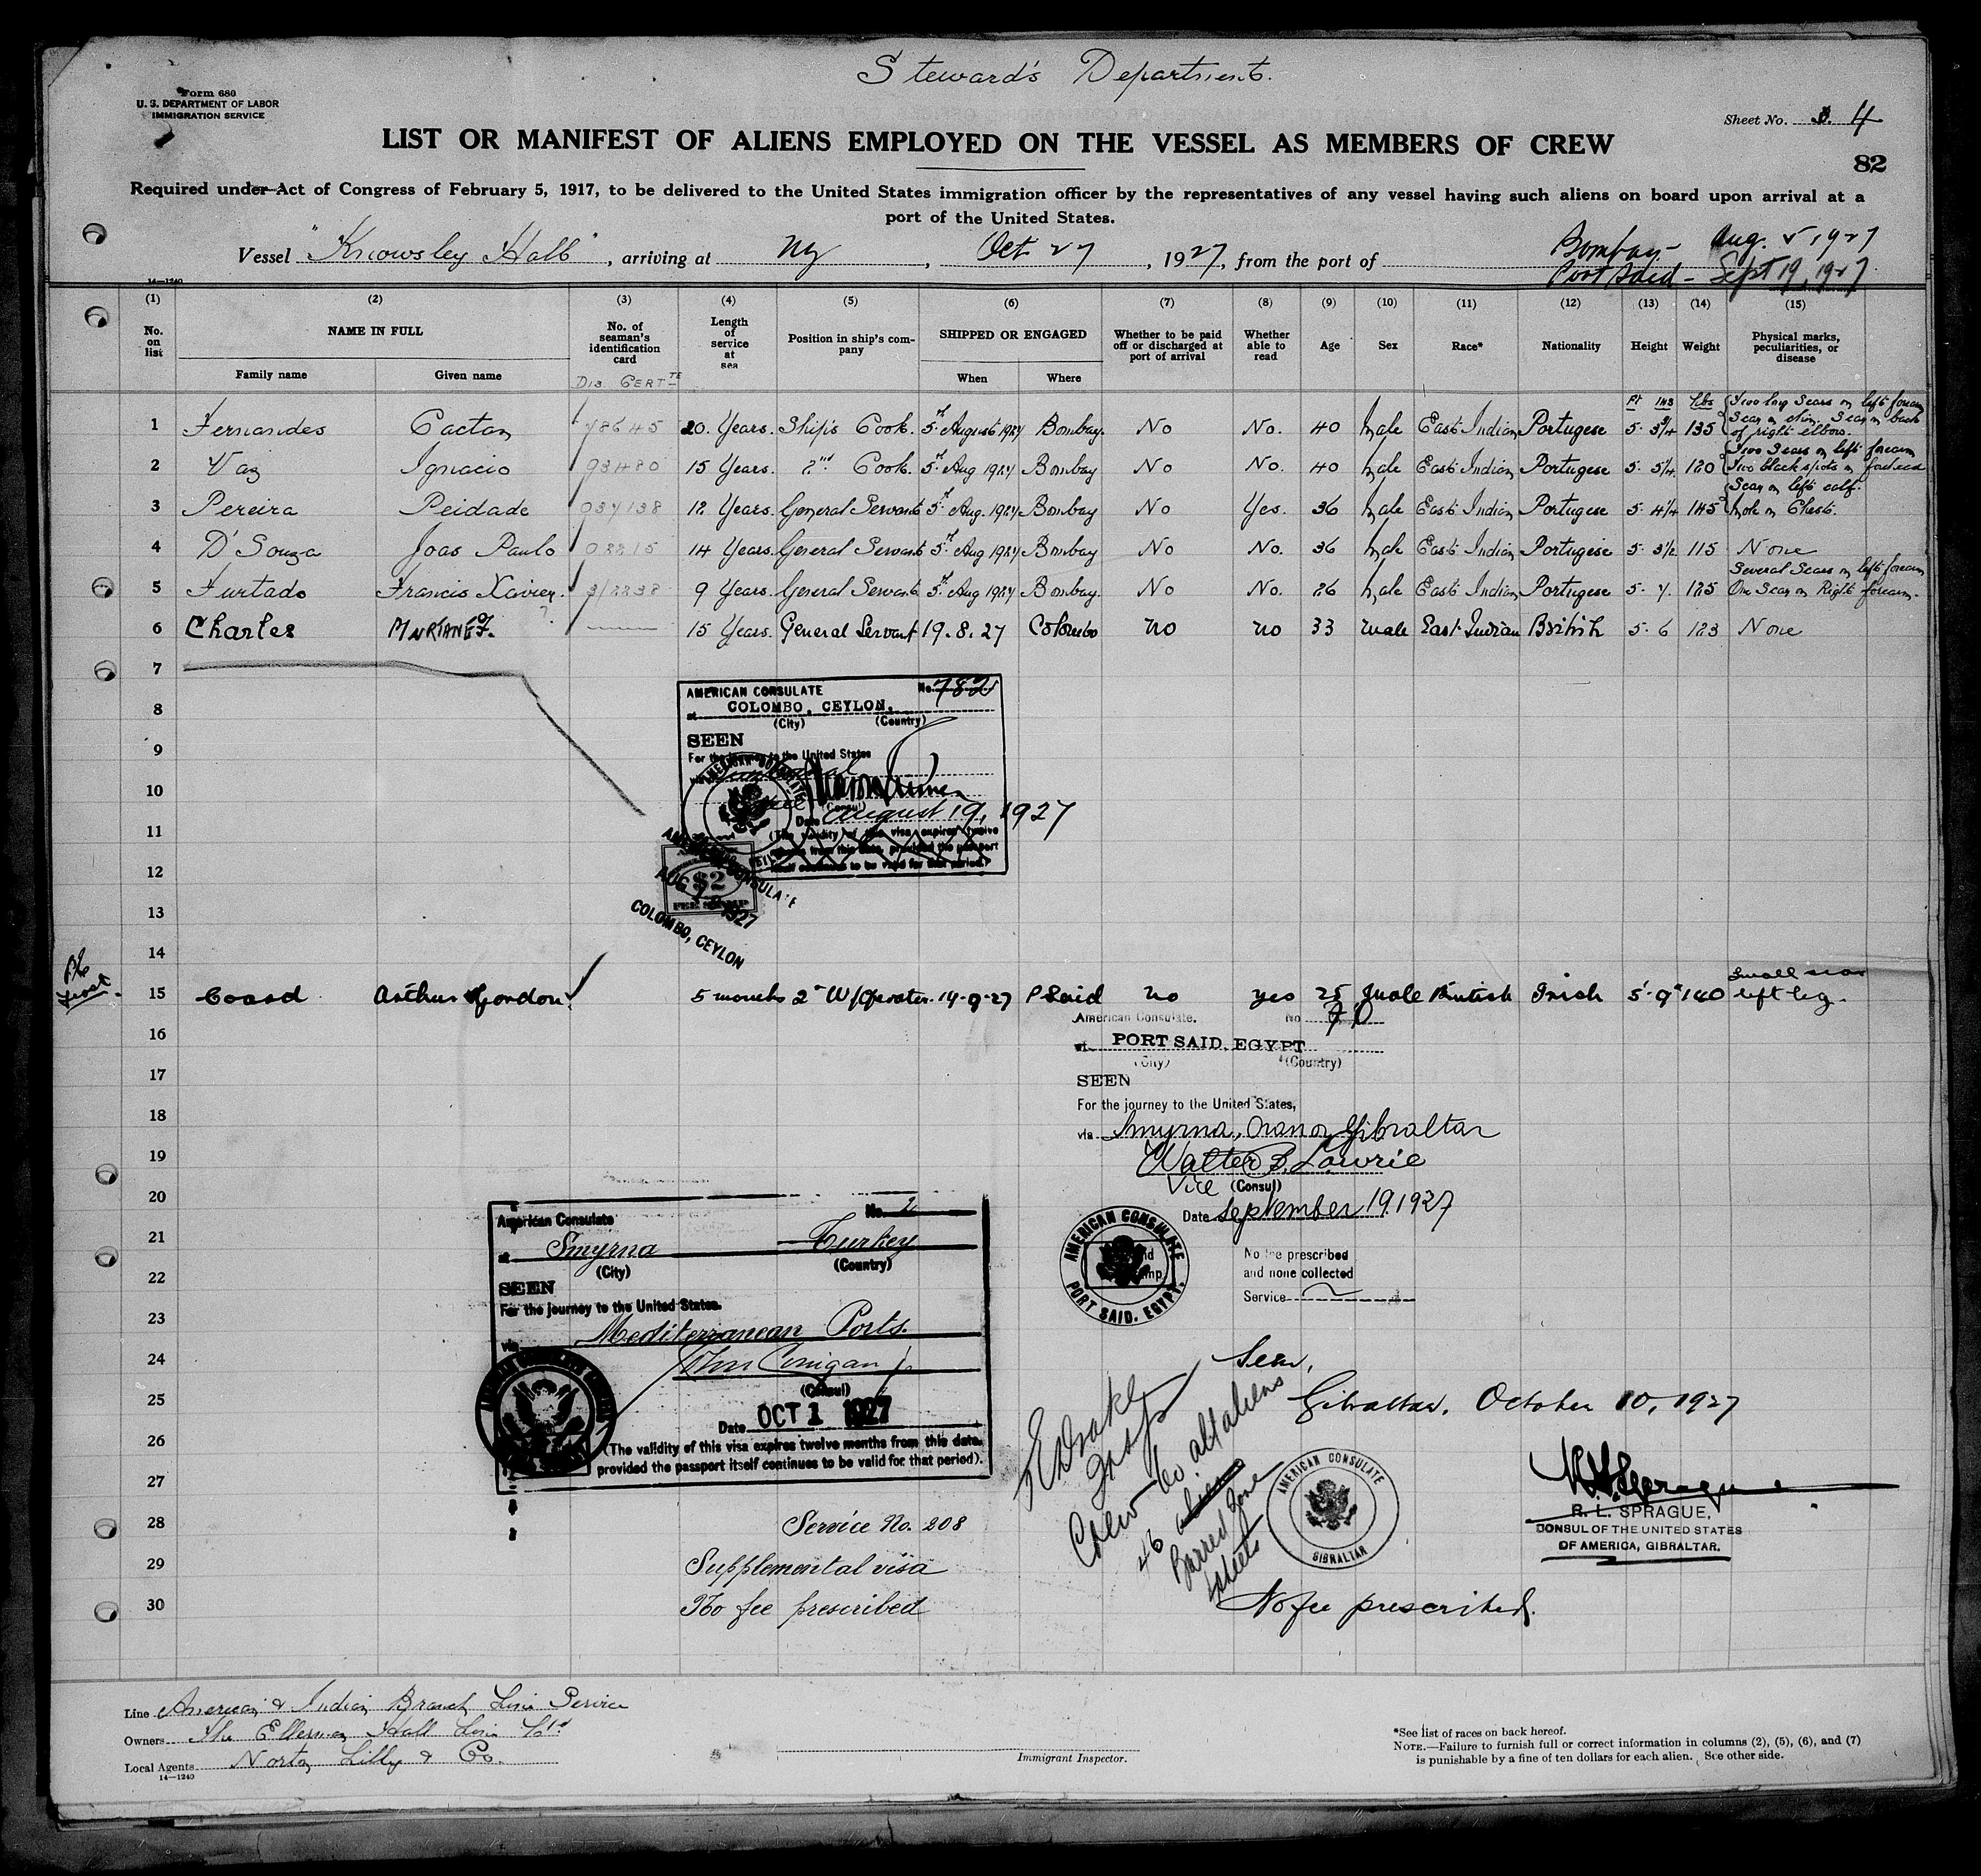 Steward's Department.
Form 680
U. S. DEPARTMENT OF LABOR
IMMIGRATION SERVICE
Sheet No. 4
LIST OR MANIFEST OF ALIENS EMPLOYED ON THE VESSEL AS MEMBERS OF CREW
82
Required under Act of Congress of February 5, 1917, to be delivered to the United States immigration officer by the representatives of any vessel having such aliens on board upon arrival at a
port of the United States.
Vessel "Knowsley Hall", arriving at NY, Oct 27, 1927, from the port of Bombay - Aug. 5, 1927
Port Said - Sept 19, 1927
14—1240
(1) (2) (3) (4) (5) (6) (7) (8) (9) (10) (11) (12) (13) (14) (15)
No. on list NAME IN FULL No. of seaman's identification card Length of service at sea Position in ship's company SHIPPED OR ENGAGED Whether to be paid off or discharged at port of arrival Whether able to read Age Sex Race* Nationality Height Weight Physical marks, peculiarities, or disease
Family name Given name Dis CERT TE When Where
Ft Ins Lbs
1 Fernandes Caetan 78645 20. Years. Ship's Cook. 5th August 1927 Bombay. No No. 40 Male East Indian Portugese 5. 3¾ 135 Two long Scars on left forearm Scar on chin. Scar on back of right elbow.
2 Vaz Ignacio 93480 15 Years. 2nd Cook. 5th Aug 1927 Bombay No No. 40 Male East Indian Portugese 5. 5¼ 120 Two Scars on left forearm Two black spots on forehead
3 Pereira Peidade 037138 12 Years. General Servant 5th Aug. 1927 Bombay No Yes. 36 Male East Indian Portugese 5. 4¼ 145 Scar on left calf. Mole on Chest.
4 D'Souza Joas Paulo 02215 14 Years. General Servant 5th Aug 1927 Bombay No No. 36 Male East Indian Portugese 5. 3½ 115 None
5 Furtado Francis Xavier. 3/2238 9 Years. General Servant 5th Aug 1927 Bombay. No No. 26 Male East Indian Portugese 5. 7. 125 Several Scars on left forearm One Scar on Right forearm.
6 Charles 15 Years. General Servant 19. 8. 27 Colombo no no 33 male East Indian British 5. 6 123 None
7
8
9
10
11
12
13
14
AMERICAN CONSULATE No. 782
at COLOMBO, CEYLON.
(City) (Country)
SEEN
For the journey to the United States
(Consul)
Date August 19, 1927
(The validity of this visa expires twelve
months from this date, provided the passport
itself continues to be valid for that period)
$2
AMERICAN CONSULATE
AUG 19 1927
COLOMBO, CEYLON
15 Coard Arthur Gordon 5 months 2nd W/Operator. 19-9-27 P Said no yes 25 male British Irish 5'-9" 140 Small scar left leg.
16
17
18
19
20
21
22
23
24
25
26
27
28
29
30
American Consulate. No 70
at PORT SAID. EGYPT
(City) (Country)
SEEN
For the journey to the United States,
via Smyrna, Oran or Gibraltar
Walter B. Lowrie
Vice (Consul)
Date September 19. 1927
AMERICAN CONSULATE
PORT SAID. EGYPT.
No fee prescribed
and none collected
Service
American Consulate No. 2
at Smyrna Turkey
(City) (Country)
SEEN
For the journey to the United States.
via Mediterranean Ports.
John Corrigan Jr
(Consul)
Date OCT 1 1927
(The validity of this visa expires twelve months from this date.
provided the passport itself continues to be valid for that period).
Service No. 208
Supplemental visa
No fee prescribed
Seen,
Gibraltar, October 10, 1927
Crew 60 all aliens
46
Barred Zone
4 sheets
AMERICAN CONSULATE
GIBRALTAR
R. L. SPRAGUE,
CONSUL OF THE UNITED STATES
OF AMERICA, GIBRALTAR.
No fee prescribed.
Line American & Indian Branch Line Service
Owners The Ellerman Hall Line Ltd
Local Agents Norton Lilly & Co.
14—1240
Immigrant Inspector.
*See list of races on back hereof.
NOTE.—Failure to furnish full or correct information in columns (2), (5), (6), and (7)
is punishable by a fine of ten dollars for each alien. See other side.